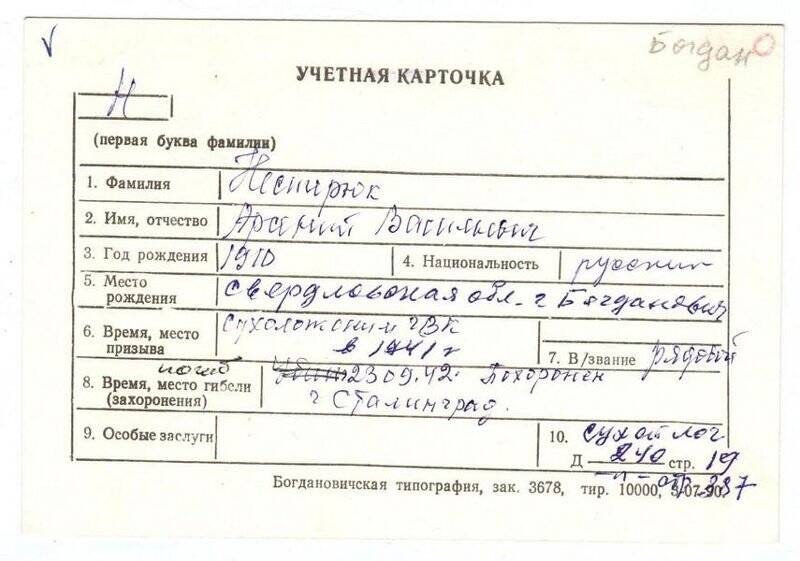 V
Богдан
УЧЕТНАЯ КАРТОЧКА
Н
(первая буква фамилии)
1. Фамилия Нестирюк
2. Имя, отчество Арсений Васильевич
3. Год рождения 1910 4. Национальность русский
5. Место рождения Свердловская обл. г Богданович
6. Время, место призыва Сухоложским ГВК
в 1941 г
7. В/звание рядовой
погиб
8. Время, место гибели (захоронения) 23 09.42. Похоронен
г Сталинград.
9. Особые заслуги
10. Сухой лог
Д 240 стр. 19
–"– стр. 387
Богдановичская типография, зак. 3678, тир. 10000, 5-07-90.